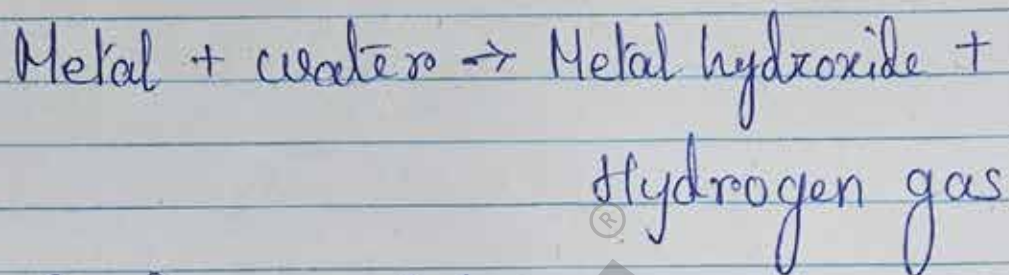 Metal + water → Metal hydroxide +
Hydrogen gas
®